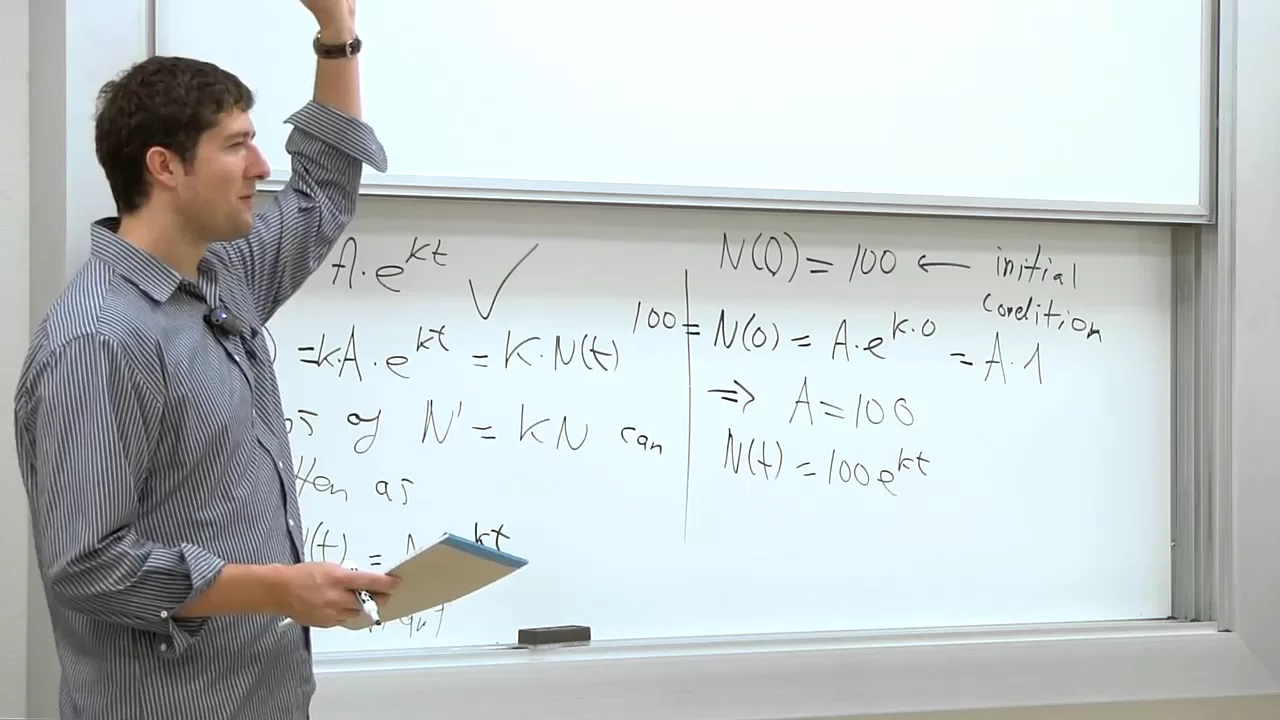 A·e^{kt} ✓
) =k·A·e^{kt} = K·N(t)
of N' = KN can
as
(t) = A kt
N(0) = 100 ← initial condition
100 = N(0) = A·e^{k·0} = A·1
⇒ A=100
N(t) = 100e^{kt}